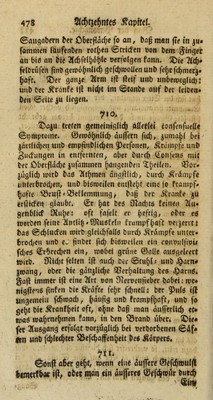 478 Achtzehntes Kapitel.
Saugadern der Oberfläche so an, daß man sie in zu-
sammen läufenden rothen Stricken von dem Finger
an bis an die Achselhöhle verfolgen kann. Die Ach-
seldrüsen sind gewöhnlich geschwollen und sehr schmerz-
haft. Der ganze Arm ist steif und unbeweglich:
und der Kranke ist nicht im Stande auf der leiden-
den Seite zu liegen.
710.
Dazu treten gemeiniglich allerlei consensuelle
Symptome. Gewöhnlich äussern sich, zumahl bei
zärtlichen und empfindlichen Personen, Krämpfe und
Zuckungen in entfernten, oder durch Consens mit
der Oberfläche zusammen hangenden Theilen. Vor-
züglich wird das Athmen ängstlich, durch Krämpfe
unterbrochen, und bisweilen entsteht eine so krampf-
hafte Brust-Beklemmung, daß der Kranke zu
ersticken glaubt. Er hat des Nachts keinen Au-
genblick Ruhe: oft faselt er heftig, oder es
werden seine Antlitz-Muskeln krampfhaft verzerrt:
das Schlucken wird gleichfalls durch Krämpfe unter-
brochen und es findet sich bisweilen ein convulsivi-
sches Erbrechen ein, wobei grüne Galle ausgeleert
wird. Nicht selten ist auch der Stuhl- und Harn-
zwang, oder die gänzliche Verhaltung des Harns.
Fast immer ist eine Art von Nervenfieber dabei: we-
nigstens sinken die Kräfte sehr schnell: der Puls ist
ungemein schwach, häufig und krampfhaft, und so
geht die Krankheit oft, ohne daß man äusserlich et-
was wahrnehmen kann, in den Brand über. Die-
ser Ausgang erfolgt vorzüglich bei verdorbenen Säf-
ten und schlechter Beschaffenheit des Körpers.
711.
Sonst aber geht, wenn eine äussere Geschwulst
bemerkbar ist, oder man ein äusseres Geschwür durch
Ein